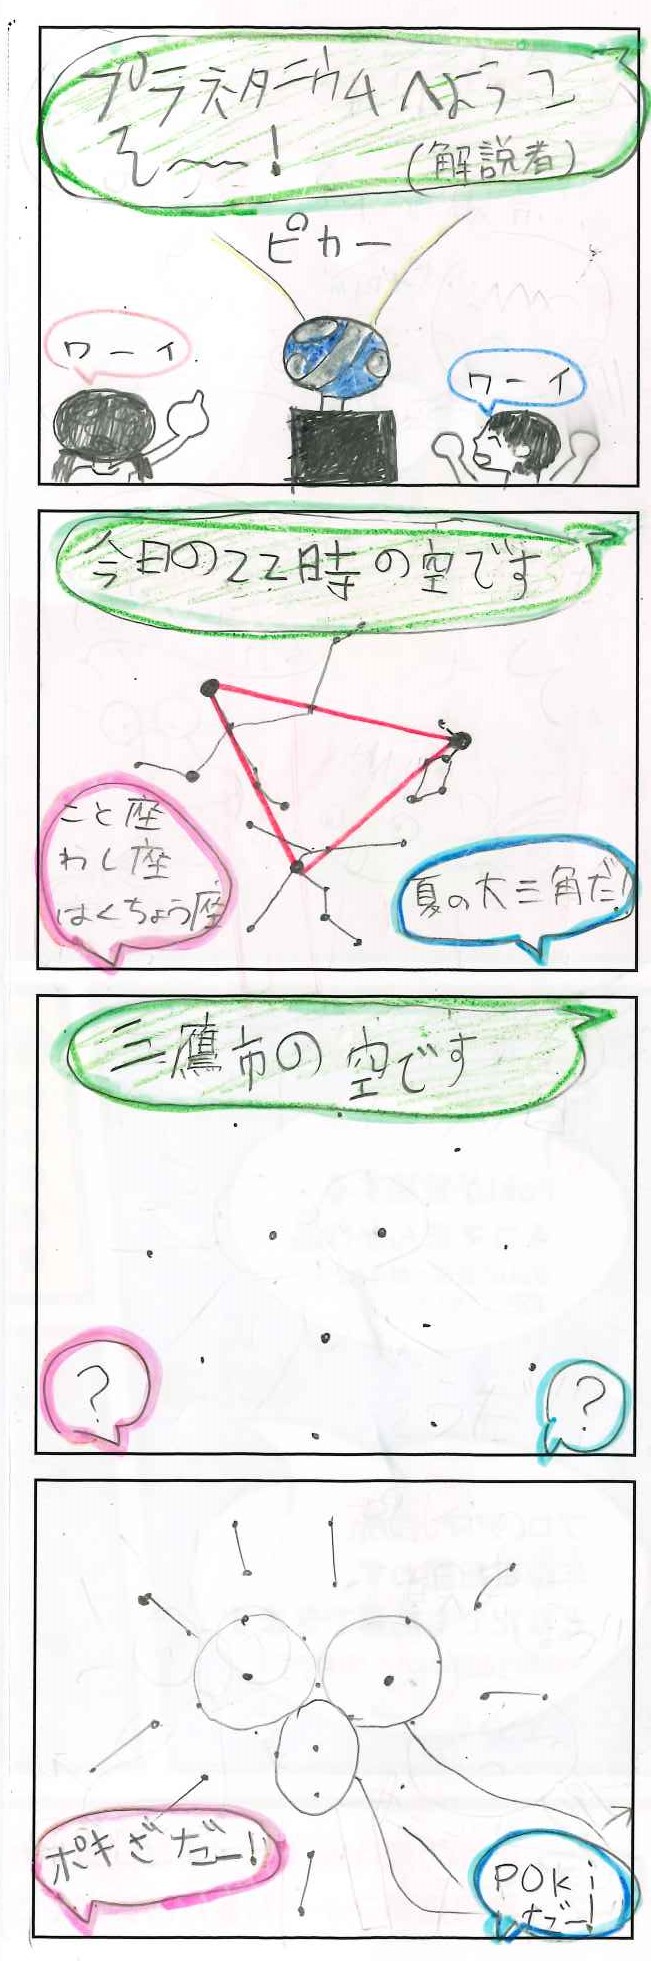 プラネタニウムへようこ
そ〜〜!
(解説者)
ピカー
ワーイ
ワーイ
今日の22時の空です
こと座
わし座
はくちょう座
夏の大三角だ!
三鷹市の空です
?
?
ポキざだー!
POKi
だー!